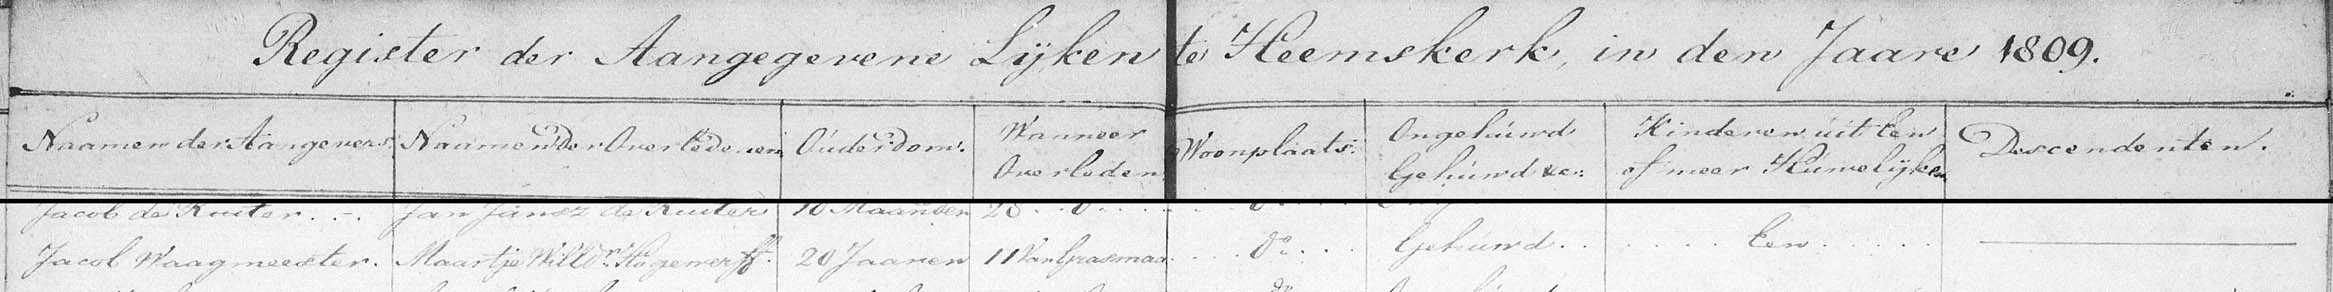 Register der Aangegevene Lijken te Heemskerk, in den Jaare 1809.
Naamen der Aangevers. Naamen der Overledenen Ouderdom. Wanneer Overleden Woonplaats. Ongehuwd Gehuwd &c. Kinderen uit Een of meer Huwelijken Descendenten.
Jacob de Ruiter. Jan Jansz de Ruiter 10 Maanden 28
Jacob Waagmeester. Maartje Willdr. Hogewerff 20 Jaaren 11 Van Grasmaa do. Gehuwd Een